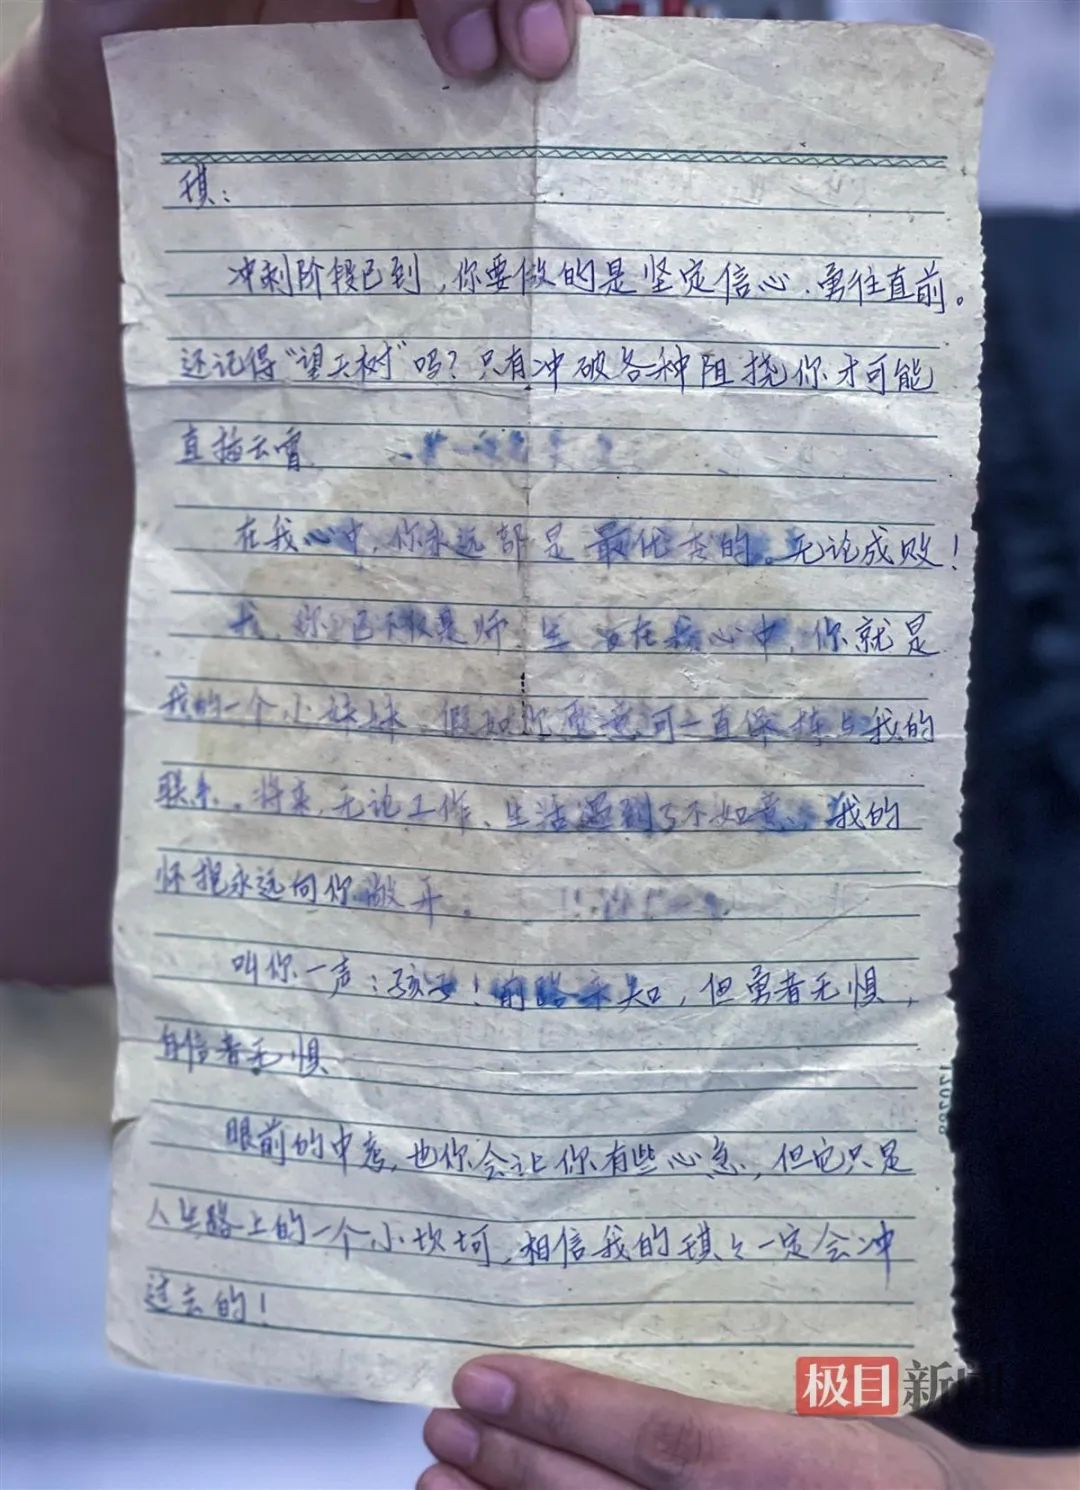 琪：
冲刺阶段已到，你要做的是坚定信心、勇往直前。
还记得“望天树”吗？只有冲破各种阻挠你才可能
直插云霄
在我心中，你永远都是最优秀的。无论成败！
我、你已不仅是师、生 在我心中，你就是
我的一个小妹妹。假如你愿意可一直保持与我的
联系。将来，无论工作、生活遇到了不如意，我的
怀抱永远向你敞开。
叫你一声：孩子！前路未知，但勇者无惧，
自信者无惧
眼前的中考，也你会让你有些心急，但它只是
人生路上的一个小坎坷，相信我的琪々一定会冲
过去的！
极目新闻